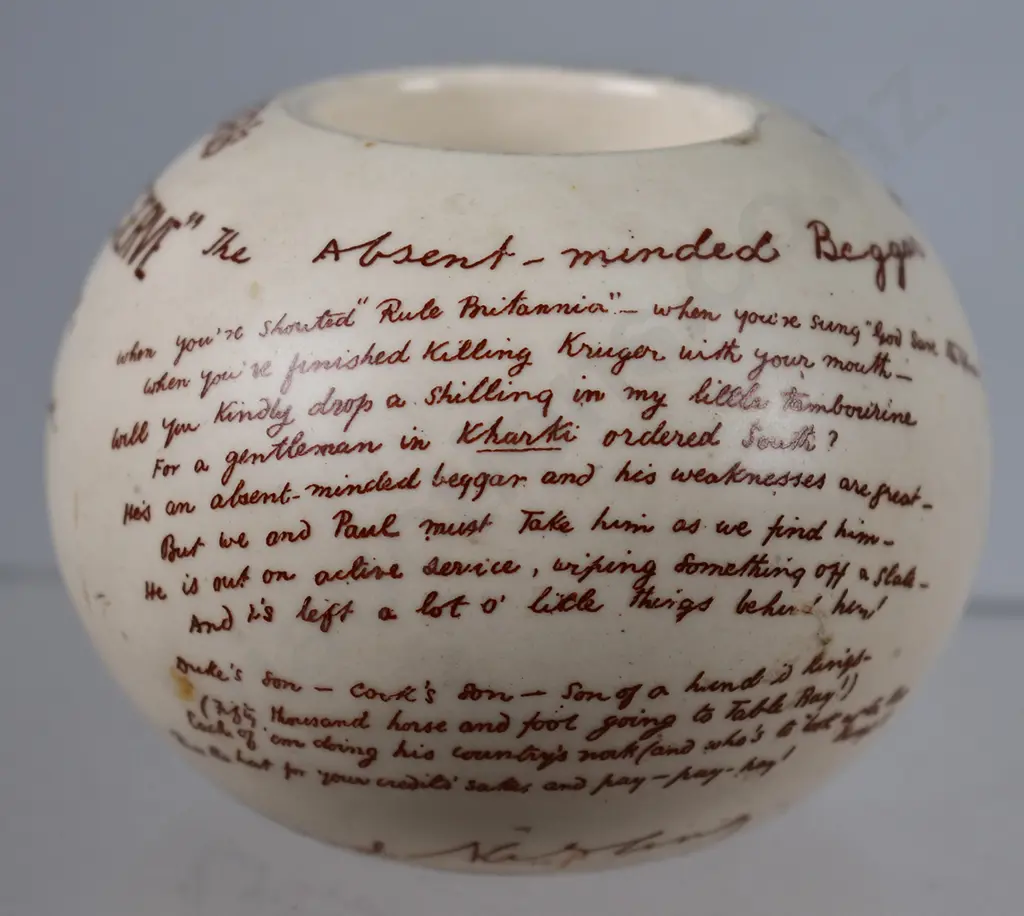 The Absent-minded Beggar
when you've shouted "Rule Britannia" – when you've sung "God Save the
when you've finished Killing Kruger with your mouth –
will you Kindly drop a shilling in my little tambourine
For a gentleman in Kharki ordered South?
He's an absent-minded beggar and his weaknesses are great –
But we and Paul must Take him as we find him –
He is out on active service, wiping something off a slate –
And he's left a lot o' little things behind him!
Duke's son – cook's son – son of a hundred kings –
(Fifty thousand horse and foot going to Table Bay!)
Each of 'em doing his country's work (and who's to look
the hat for your credit's sake, and pay – pay – pay!